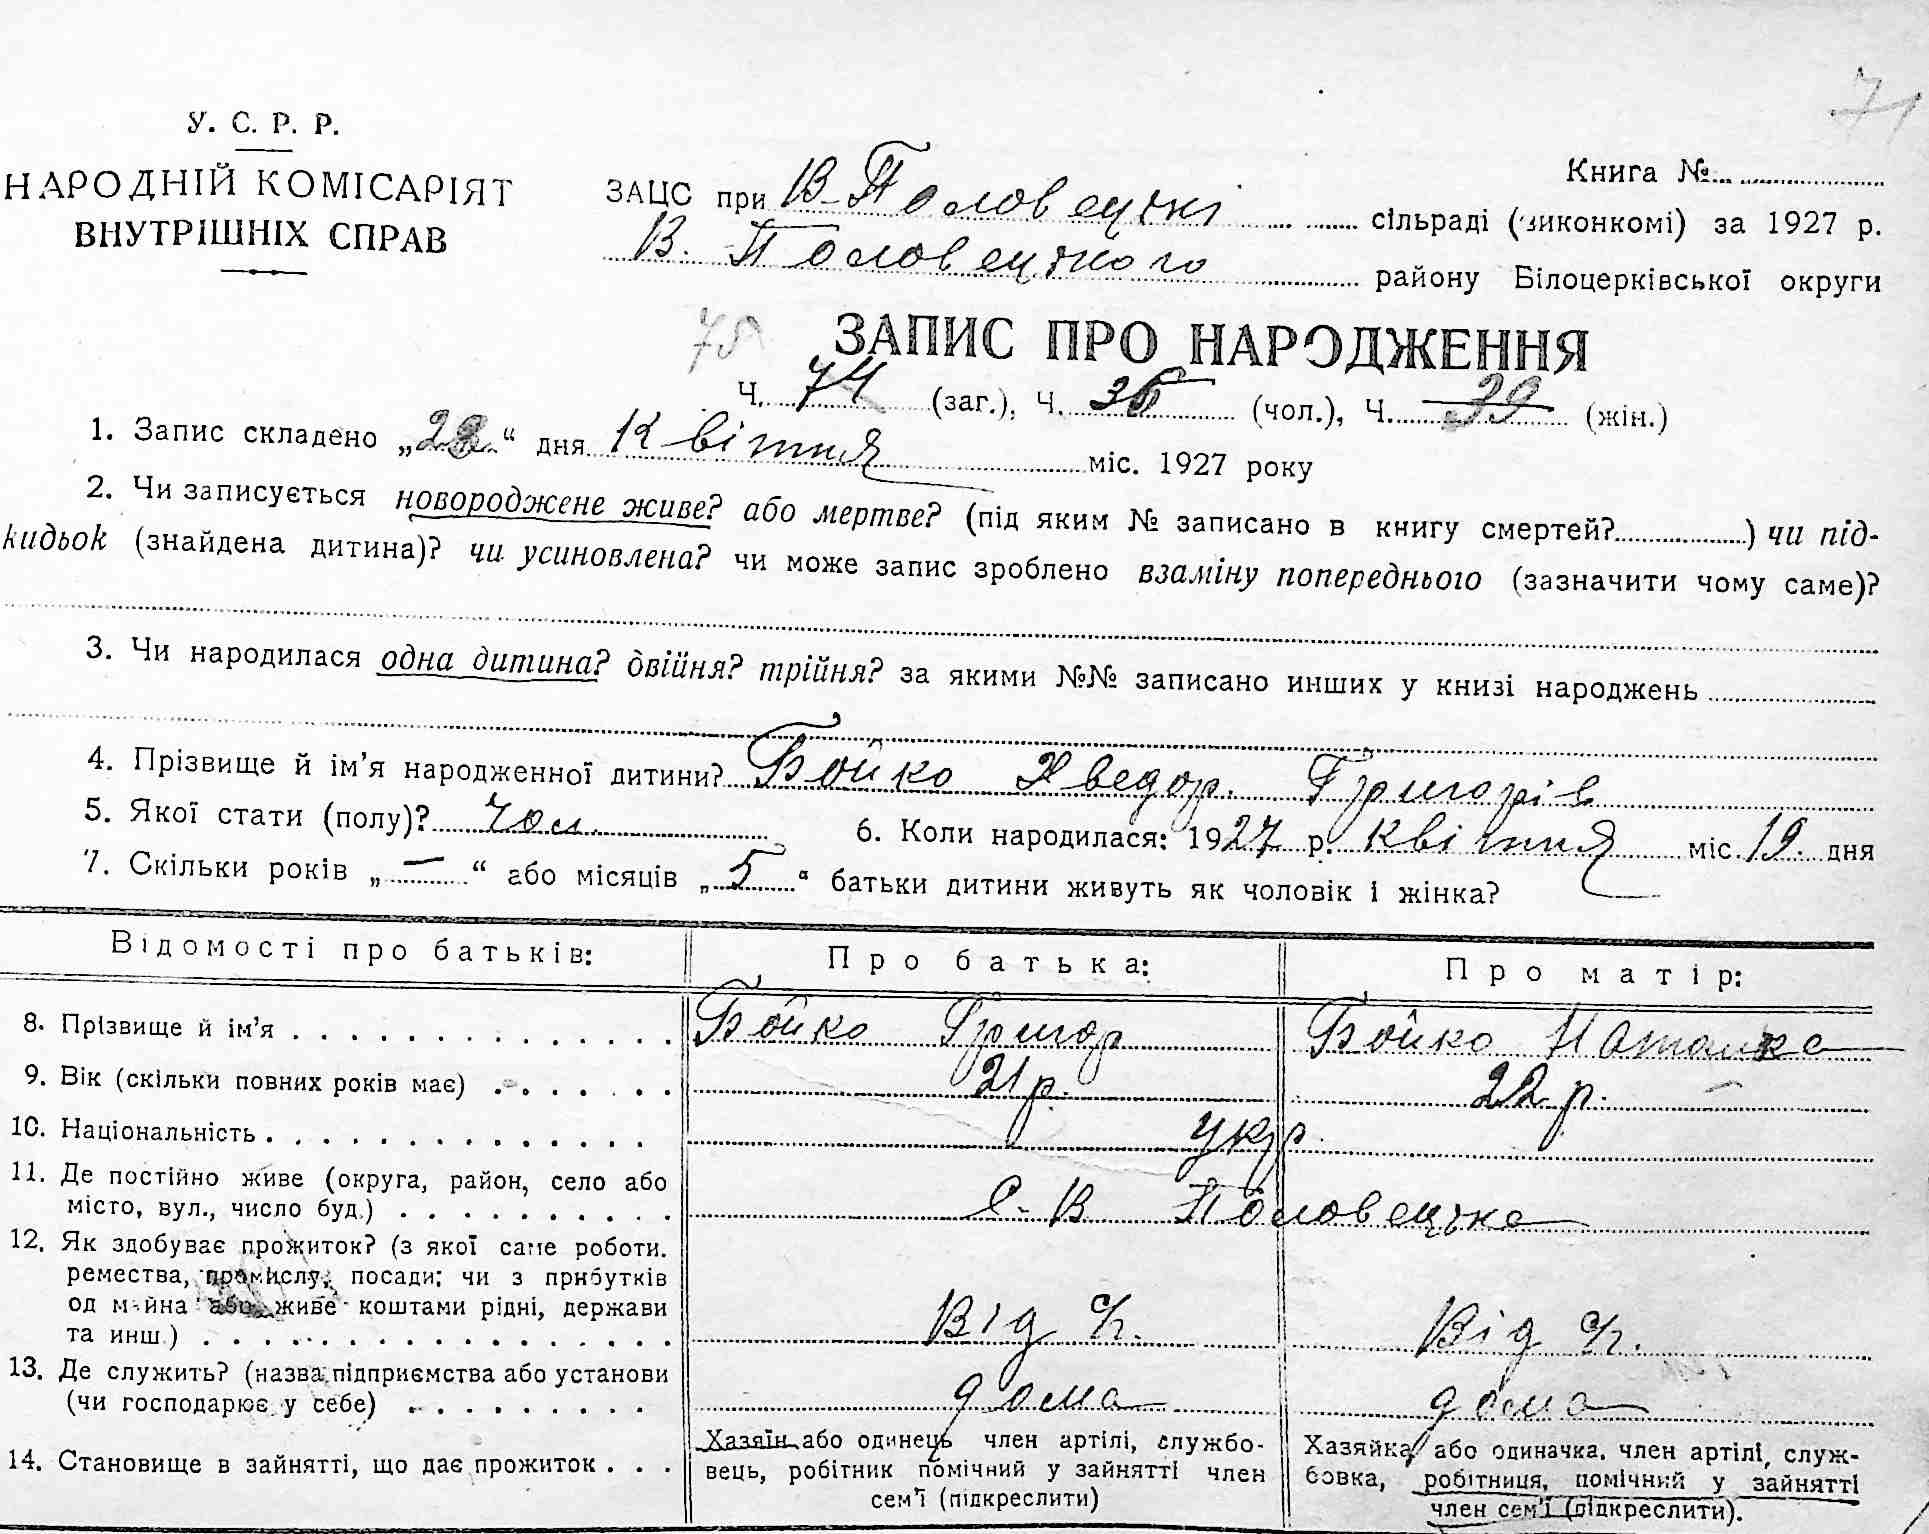 71
У. С. Р. Р.
НАРОДНІЙ КОМІСАРІЯТ
ВНУТРІШНІХ СПРАВ
Книга №
ЗАЦС при В-Половецькі сільраді (виконкомі) за 1927 р.
В. Половецького району Білоцерківської округи
75
ЗАПИС ПРО НАРОДЖЕННЯ
Ч. 74 (заг.), Ч. 35 (чол.), Ч. 39 (жін.)
1. Запис складено „22“ дня Квітня міс. 1927 року
2. Чи записується новороджене живе? або мертве? (під яким № записано в книгу смертей?) чи під-
кидьок (знайдена дитина)? чи усиновлена? чи може запис зроблено взаміну попереднього (зазначити чому саме)?
3. Чи народилася одна дитина? двійня? трійня? за якими №№ записано инших у книзі народжень
4. Прізвище й ім’я народженної дитини? Бойко Хведор. Григорів
5. Якої стати (полу)? чол. 6. Коли народилася: 1927 р. квітня міс. 19. дня
7. Скільки років „—“ або місяців „5“ батьки дитини живуть як чоловік і жінка?
Відомості про батьків: Про батька: Про матір:
8. Прізвище й ім’я Бойко Григор Бойко Наталка
9. Вік (скільки повних років має) 21 р. 22 р.
10. Національність укр.
11. Де постійно живе (округа, район, село або
місто, вул., число буд.) С. В Половецьке
12. Як здобуває прожиток? (з якої саме роботи.
ремества, промислу, посади; чи з прибутків
од майна або живе коштами рідні, держави
та инш.) Від с/г. Від с/г.
13. Де служить? (назва підприємства або установи
(чи господарює у себе) дома дома
14. Становище в зайнятті, що дає прожиток
Хазяїн або одинець член артілі, службо-
вець, робітник помічний у зайнятті член
сем’ї (підкреслити)
Хазяйка або одиначка, член артілі, служ-
бовка, робітниця, помічний у зайнятті
член сем’ї (підкреслити).